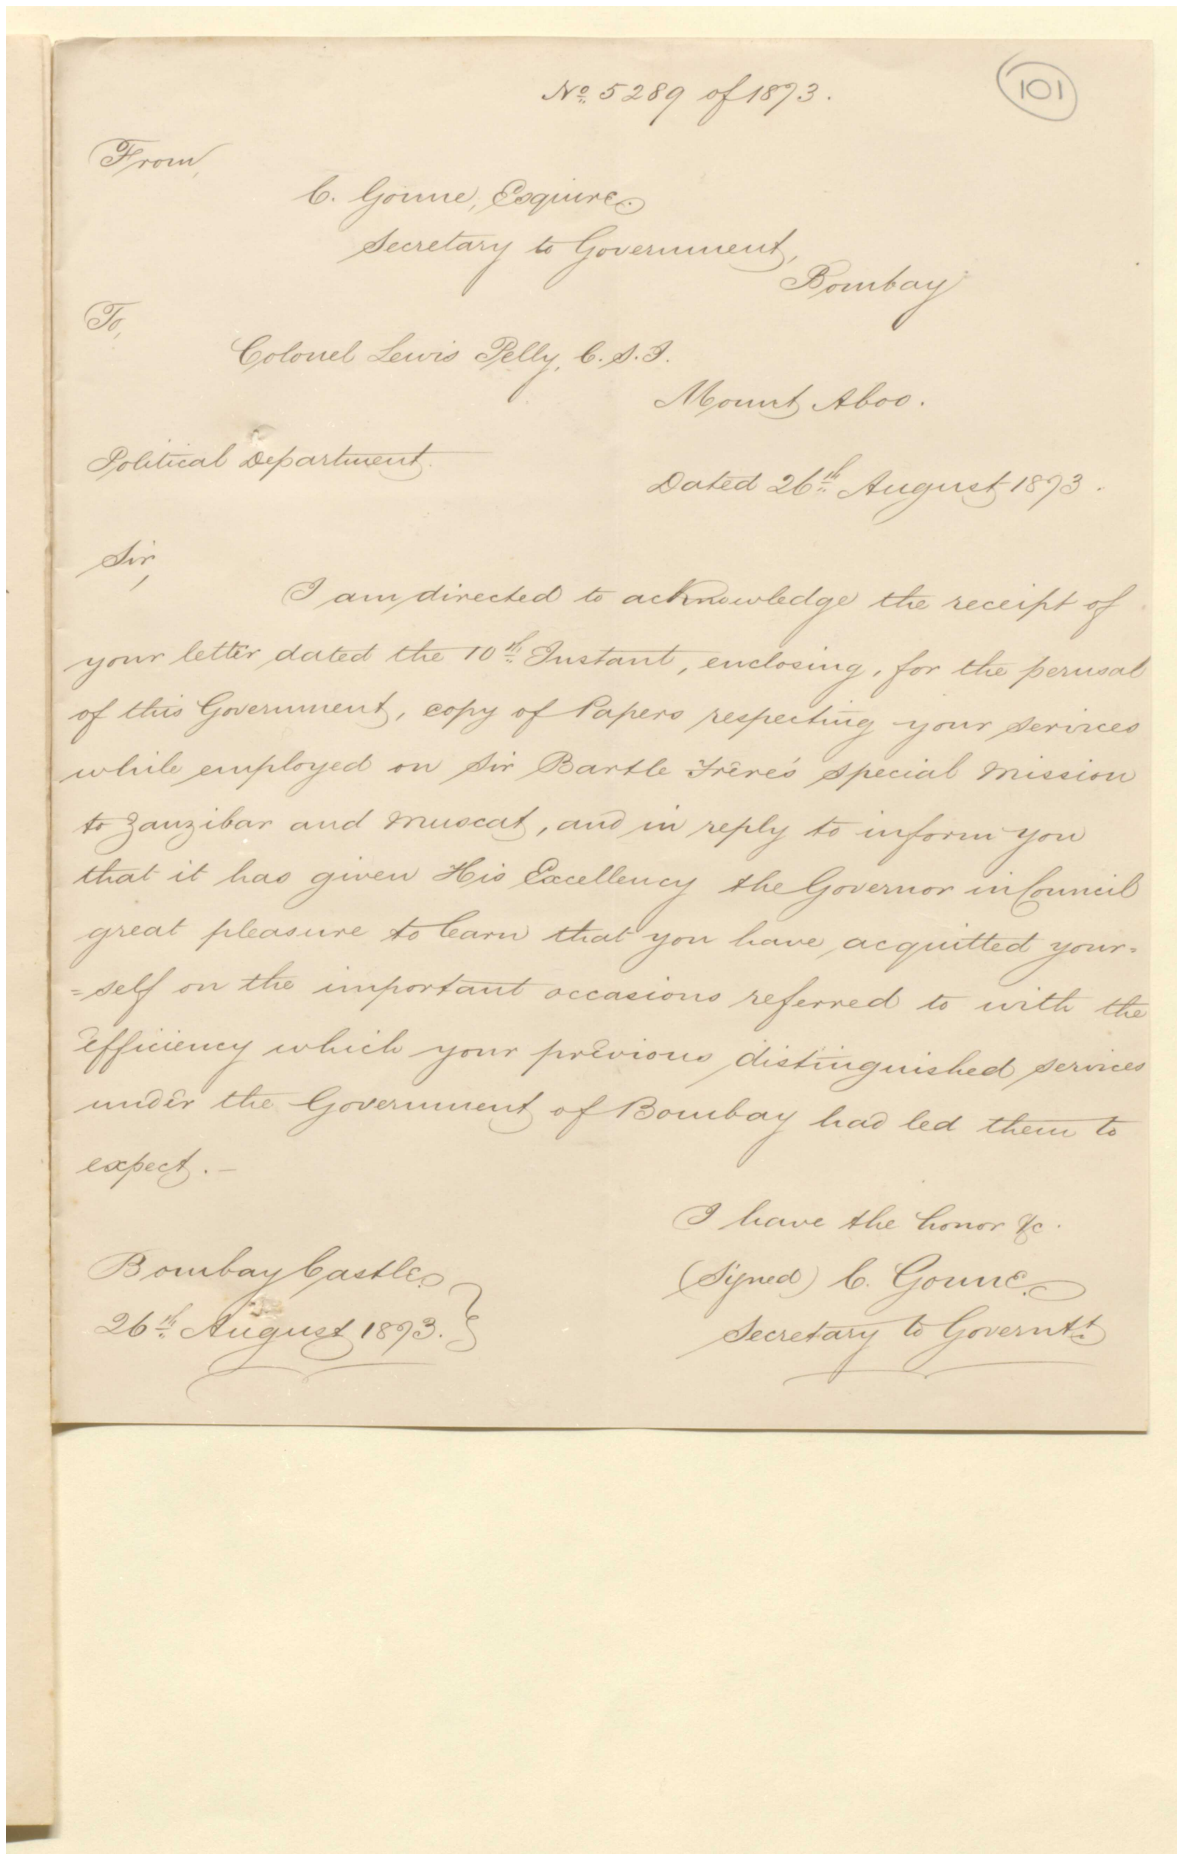 No. 5289 of 1873.
101
From,
C. Gonne, Esquire.
Secretary to Government,
Bombay
To,
Colonel Lewis Pelly, C.S.I.
Mount Aboo.
Political Department.
Dated 26th August 1873.
Sir,
I am directed to acknowledge the receipt of
your letter dated the 10th Instant, enclosing, for the perusal
of this Government, copy of Papers respecting your services
while employed on Sir Bartle Frêre's special Mission
to Zanzibar and Muscat, and in reply to inform you
that it has given His Excellency the Governor in Council
great pleasure to learn that you have acquitted your=
=self on the important occasions referred to with the
efficiency which your previous distinguished services
under the Government of Bombay had led them to
expect. —
I have the honor &c.
Bombay Castle.
(Signed) C. Gonne.
26th August 1873. }
Secretary to Governtt.